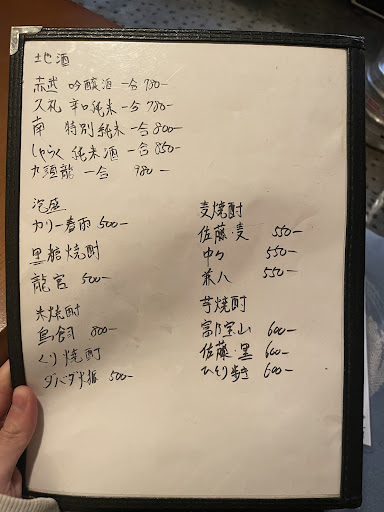 地酒
吟醸酒 一合 780-
久礼 辛口純米 一合 780-
南 特別純米 一合 800-
しゃらく 純米酒 一合 850-
九頭龍 一合 980-
泡盛
カリー春雨 500-
黒糖焼酎
龍宮 500-
米焼酎
鳥飼 800-
くり焼酎
ダバダ火振 500-
麦焼酎
佐藤・麦 550-
中々 550-
兼八 550-
芋焼酎
富乃宝山 600-
佐藤・黒 600-
ひとり歩き 600-